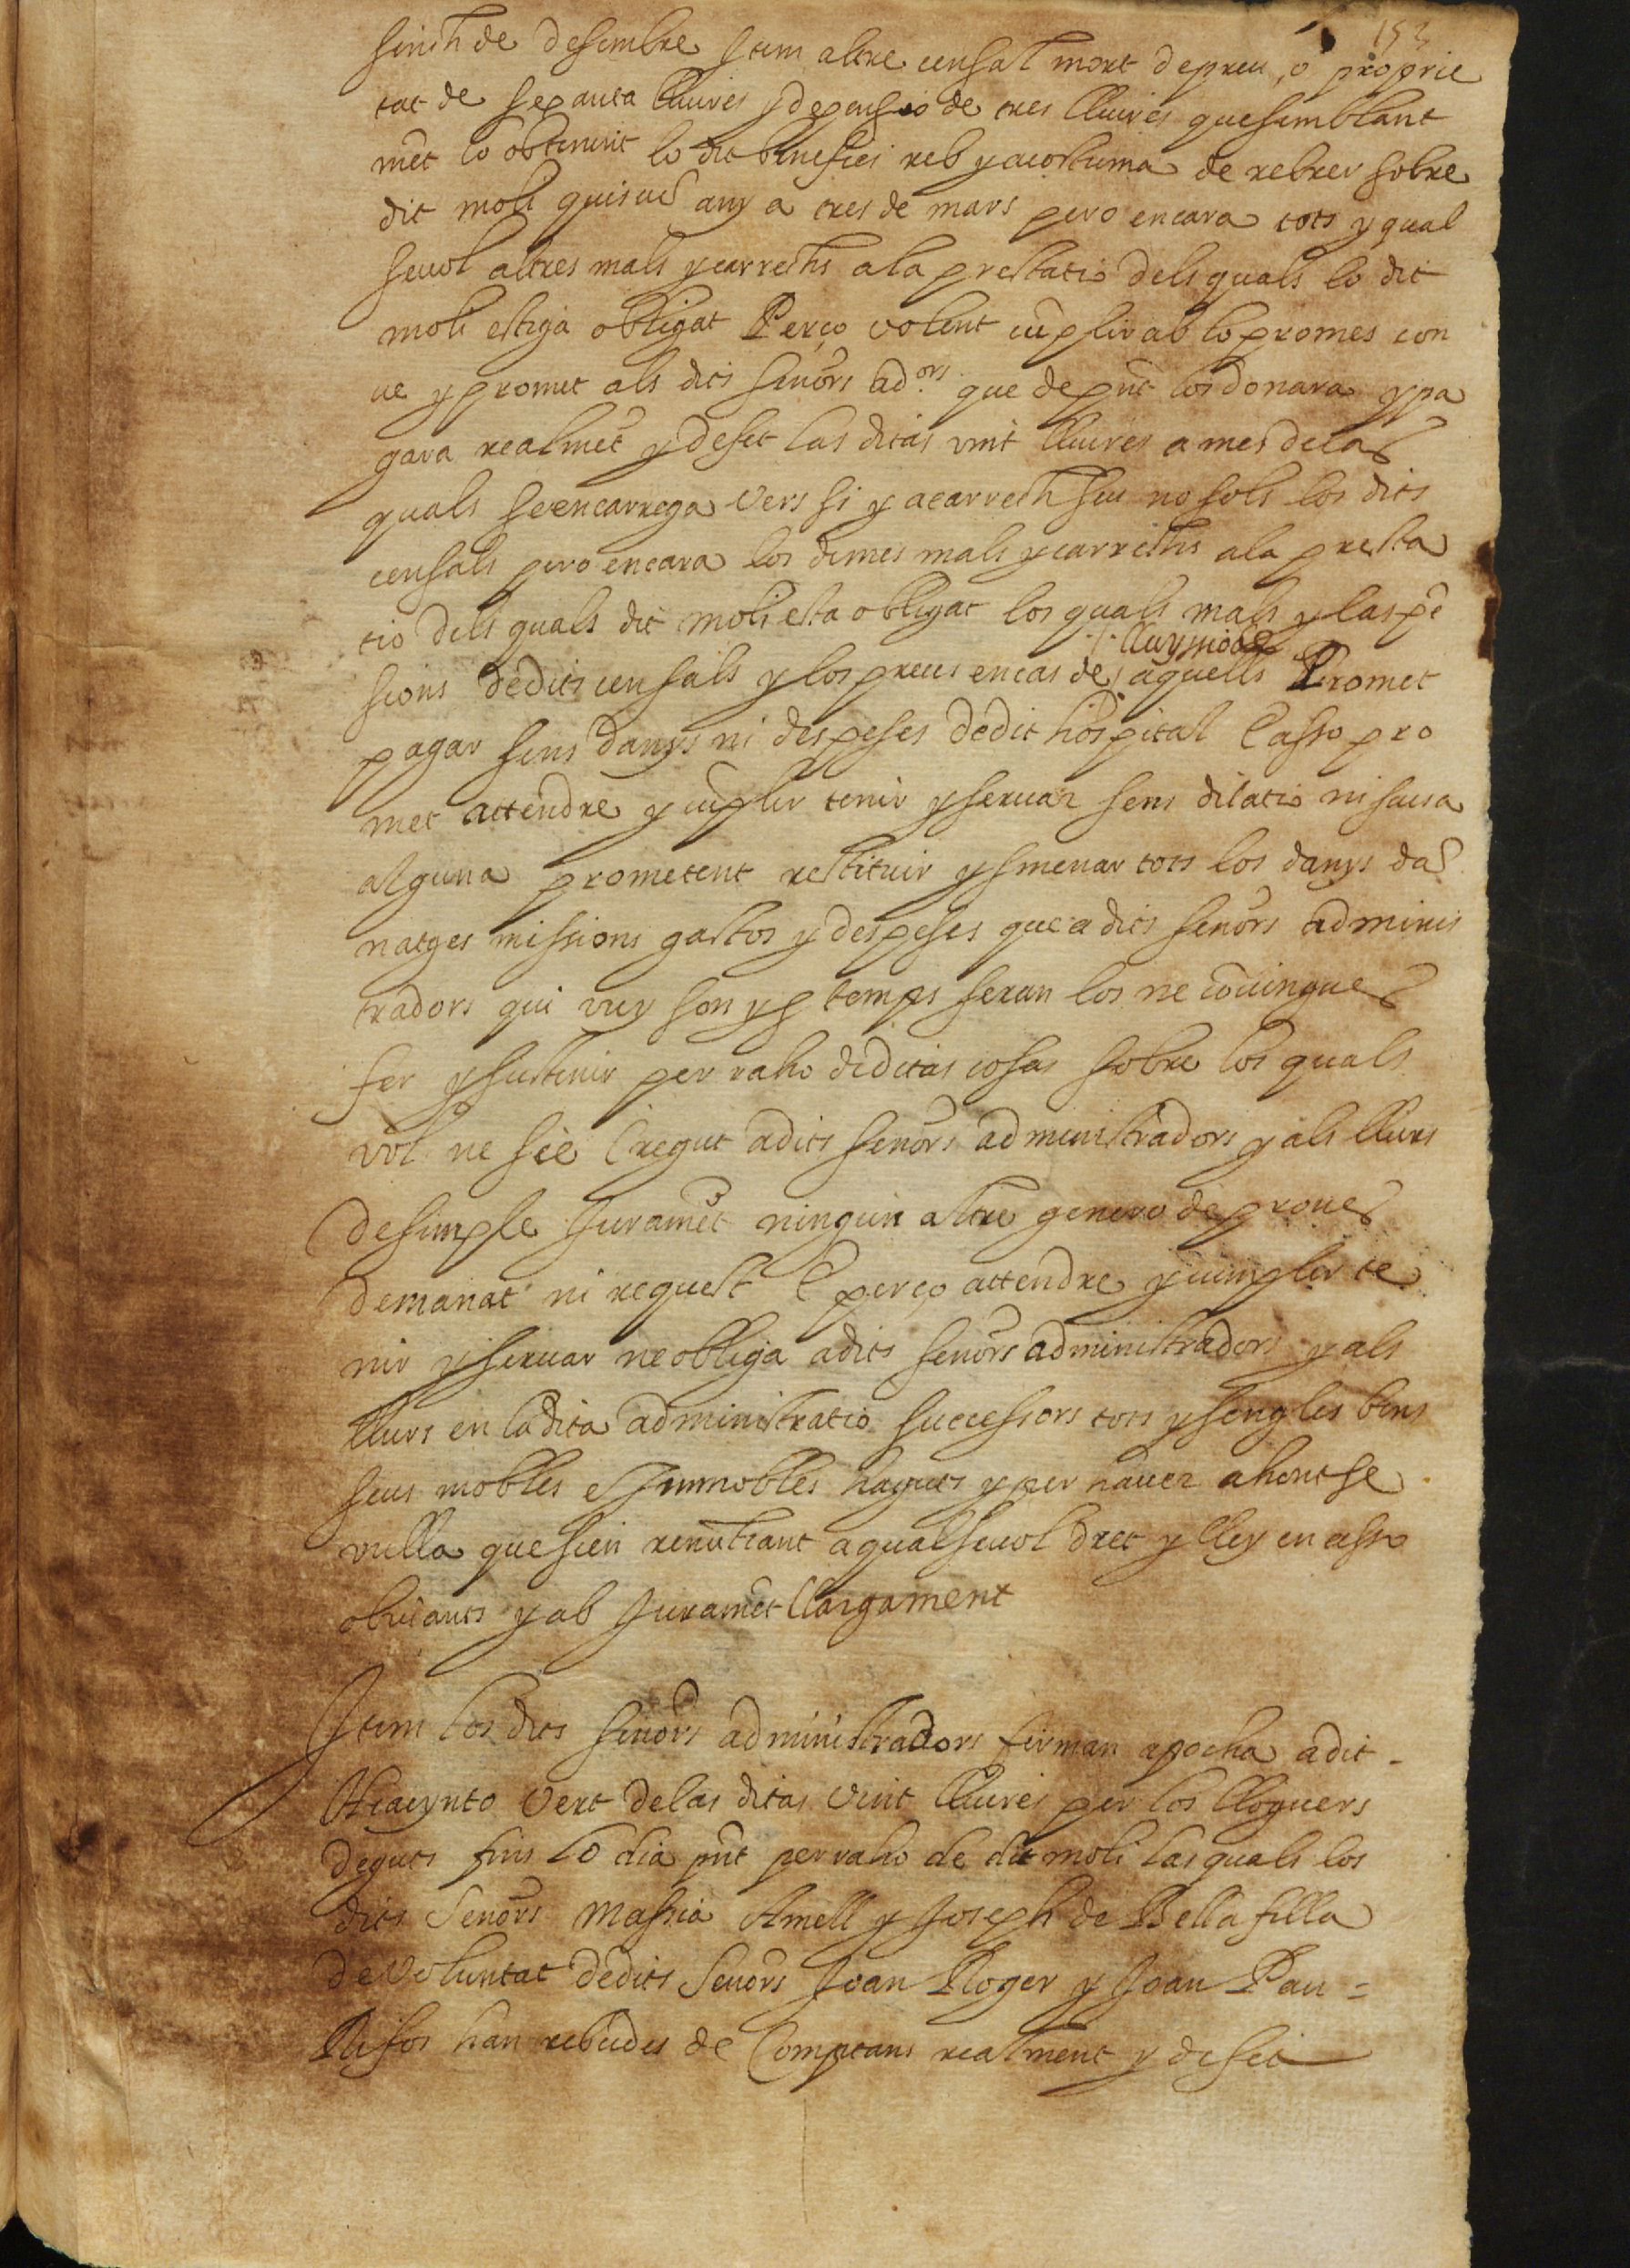 153
sinch de desembre Item altre censal mort de preu, o proprie
tat de sexanta lliures y de pensio de tres lliures que semblant
mēt lo obtenint lo dit benefici reb y acostuma de rebrer sobre
dit moli quiscū any a tres de mars pero encara tots y qual
seuol altres mals y carrechs ala prestatio dels quals lo dit
moli estiga obligat Perço volent cūplir ab lo promes con
ue y promet als dits señors ad.ors que de pnt los donara y pa
gara realmēt y de fet las ditas vint lliures a mes de las
quals se encarrega vers si y a carrech seu no sols los dits
censals pero encara los demes mals y carrechs ala presta
tio dels quals dit moli esta obligat los quals mals y las pē
sions de dits censals y los preus en cas de lluymose aquells Promet
pagar sens danys ni despeses de dit hospital E asso pro
met attendre y cūplir tenir y seruar sens dilatio ni scusa
alguna prometent restituir y smenar tots los danys da
natges missions gastos y despeses que a dits señors adminis
tradors qui vuy son y p temps seran los ne cōuingues
fer y sustenir per raho de ditas cosas sobre los quals
vol ne sie cregut a dits señors administradors y als llurs
de simple Juramēt ningun altre genero de proues
demanat ni request E perço attendre y cumplir te
nir y seruar ne obliga a dits señors administradors y als
llurs en la dita administratio successors tots y sengles bens
seus mobles e Immobles haguts y per hauer ahont se
vulla que sien renūtiant a qualseuol dret y lley en asso
obuiants y ab Juramēt llargament
Item los dits señors administradors firman apocha a dit
Hiacynto Vert de las ditas vint lliures per los lloguers
deguts fins lo dia pnt per raho de dit moli las quals los
dits Señors Massia Amell y Joseph de Bellafilla
de voluntat de dits Señors Joan Roger y Joan Pau =
Rifos han rebudes de Comptans realment y de fet